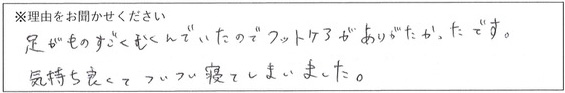 ※理由をお聞かせください
足がものすごくむくんでいたのでフットケアがありがたかったです。
気持ち良くてついつい寝てしまいました。